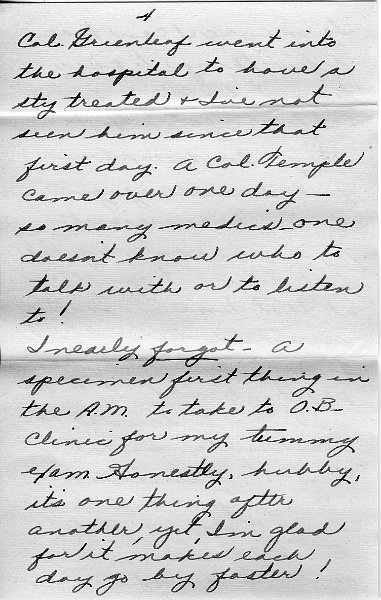 4
Col. Greenleaf went into
the hospital to have a
sty treated + I've not
seen him since that
first day. A Col. Temple
came over one day –
so many medics one
doesn't know who to
talk with or to listen
to!
I nearly forgot – A
specimen first thing in
the A.M. to take to O.B.
Clinic for my tummy
exam. Honestly, hubby,
it's one thing after
another, yet, I'm glad
for it, makes each
day go by faster!